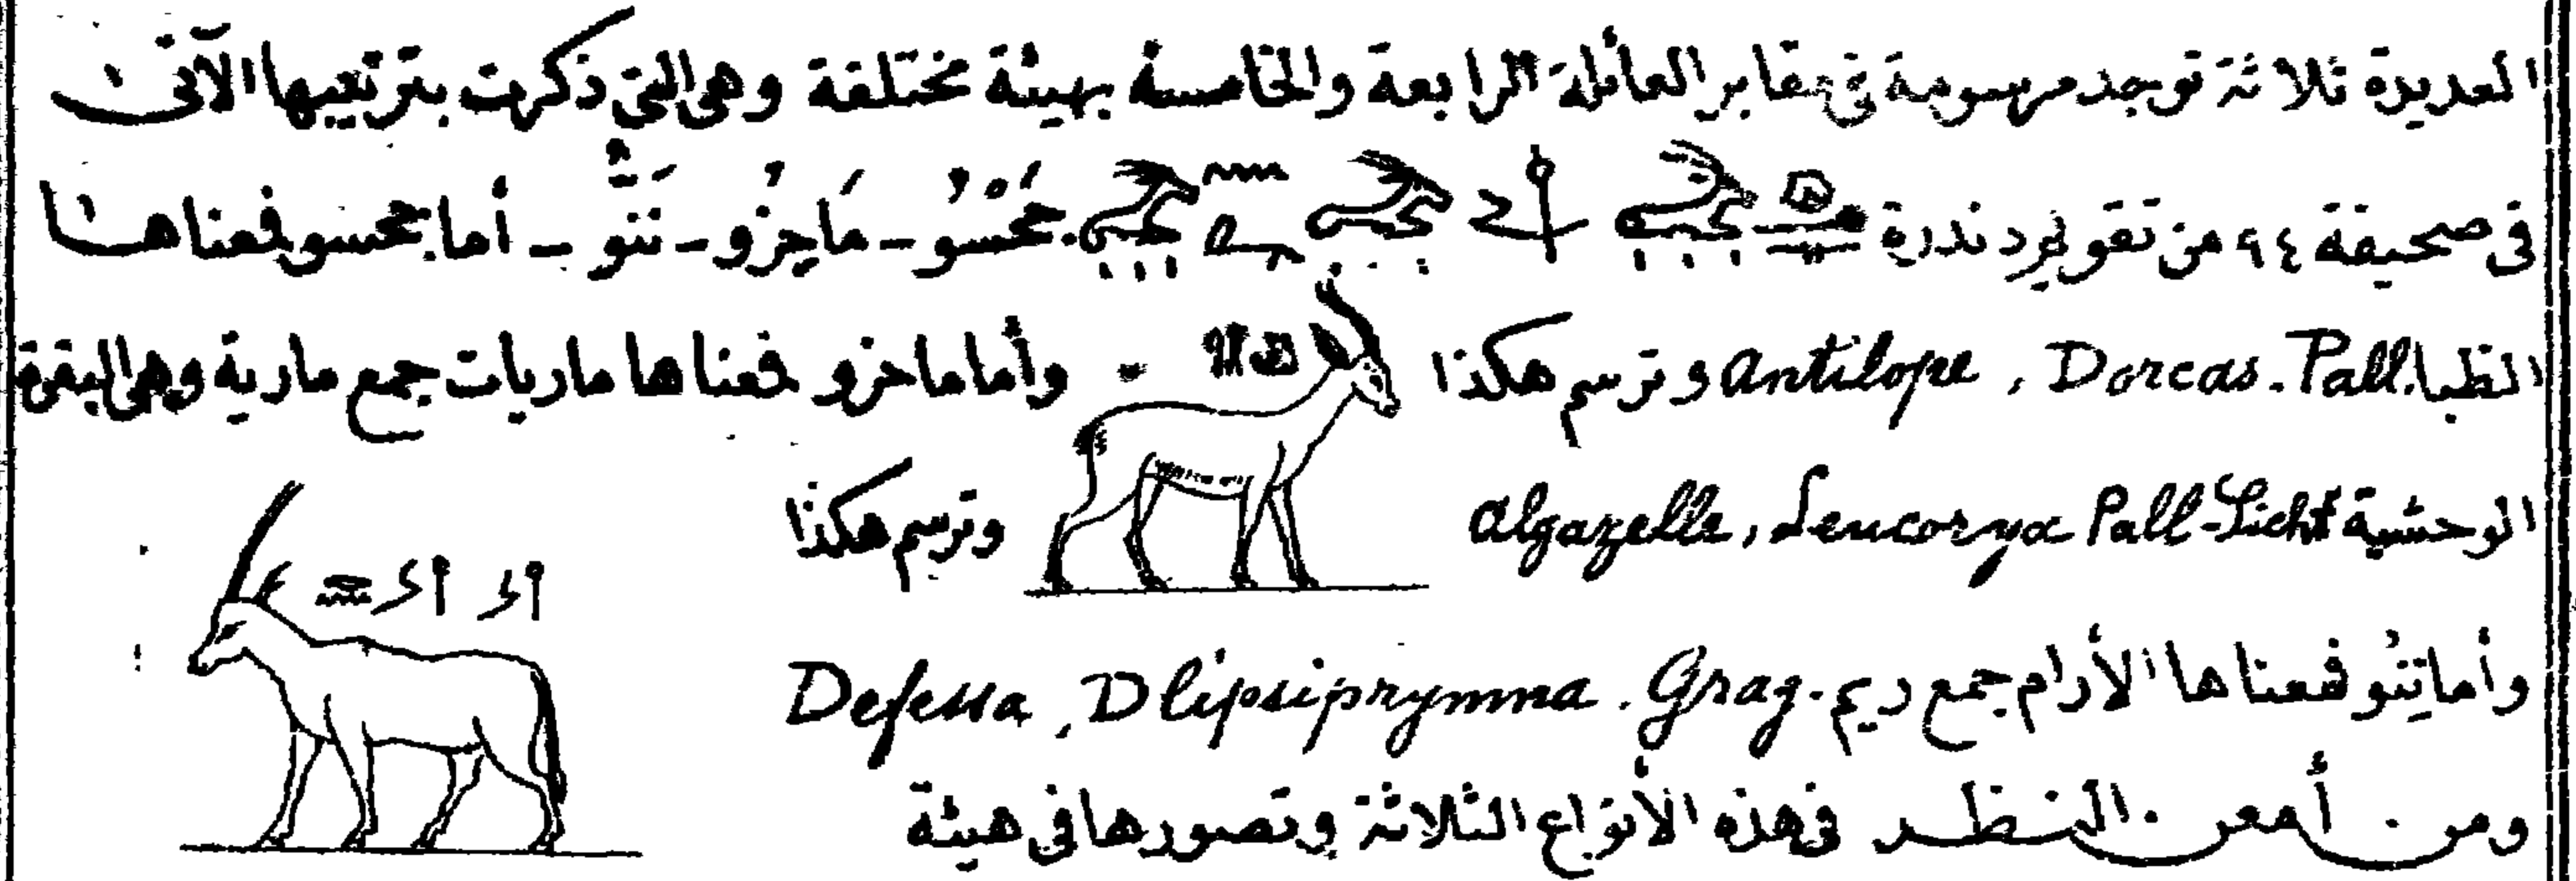 العديدة ثلاثة توجد مرسومة في مقابر العائلة الرابعة والخامسة بهيئة مختلفة وهى التى ذكرت بترتيبها الآتى
فى صحيفة ٩٤ من تقويم دندرة مَحْسُو - مَاحِزُو - نَتُو - أما محسو فمعناها
الظبا Antilope, Dorcas. Pall. وترسم هكذا وأما ماحزو فمعناها ماريات جمع مارية وهى البقرة
الوحشية Algazelle, Leucoryx Pall-Licht وترسم هكذا
وأما تِنُو فمعناها الأرام جمع ريم. Defessa, D lipsiprymna. Gray
ومن أمعن النظر فى هذه الأنواع الثلاثة وتصورها فى هيئة